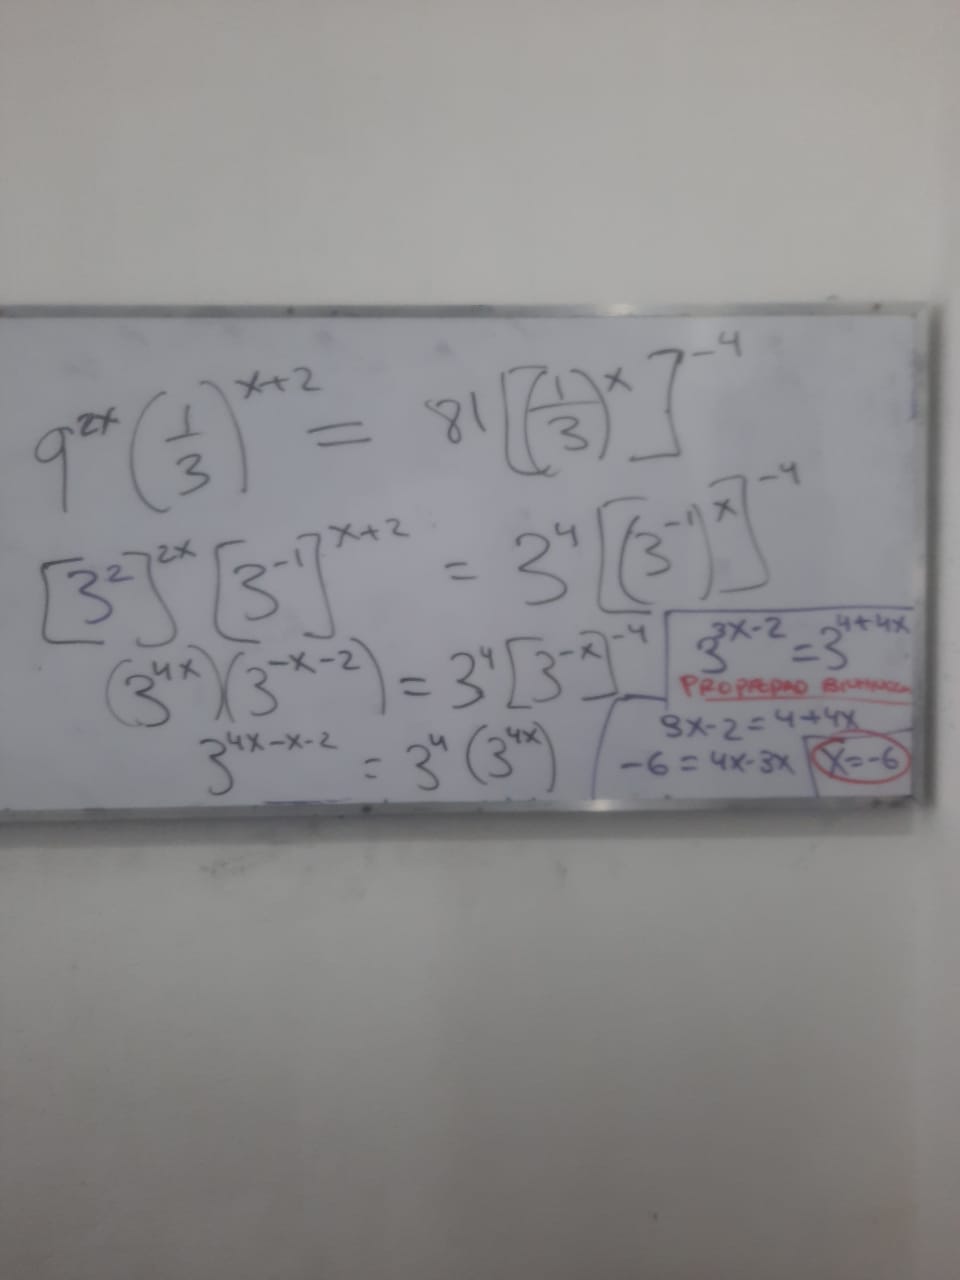 9^{2x} (1/3)^{x+2} = 81 [(1/3)^x]^{-4}
[3^2]^{2x} [3^{-1}]^{x+2} = 3^4 [(3^{-1})^x]^{-4}
(3^{4x})(3^{-x-2}) = 3^4 [3^{-x}]^{-4}
3^{4x-x-2} = 3^4 (3^{4x})
3^{3x-2} = 3^{4+4x}
3x-2 = 4+4x
-6 = 4x-3x
x=-6